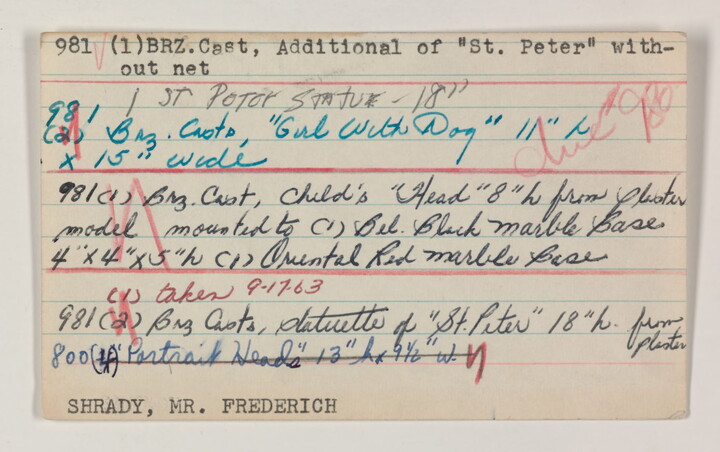 981 (1)BRZ.Cast, Additional of "St. Peter" with-
out net
1 ST PETER STATUE - 18"
981
(2) Brz. Casts, "Girl With Dog" 11" h
x 15" wide
981 (1) Brz. Cast, Child's "Head" 8"h from plaster
model mounted to (1) Bel. Black marble Base
4"x4"x5"h (1) Oriental Red marble Base
(1) taken 9-17-63
981 (2) Brz Casts, statuette of "St. Peter" 18"h. from
plaster
800 (4) "Portrait Heads" 13"h x 9½" w.
SHRADY, MR. FREDERICH